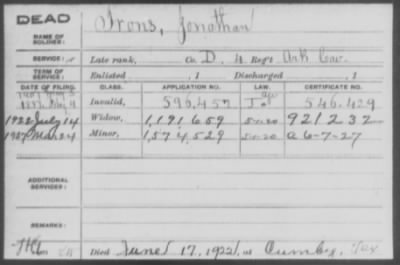 DEAD
NAME OF SOLDIER: Irons, Jonathan
SERVICE: Late rank, Co. D. 4 Reg't Ark Cav.
TERM OF SERVICE: Enlisted , 1 Discharged , 1
DATE OF FILING. CLASS. APPLICATION NO. LAW. CERTIFICATE NO.
Invalid, 596,457 546.429
1922 July 14 Widow, 1,191659 5-1-20 921232
1927 Mar 24 Minor, 1,574,529 5-1-20 a 6-7-27
ADDITIONAL SERVICES:
REMARKS:
Died June 17, 1922, at Cumby, Tex